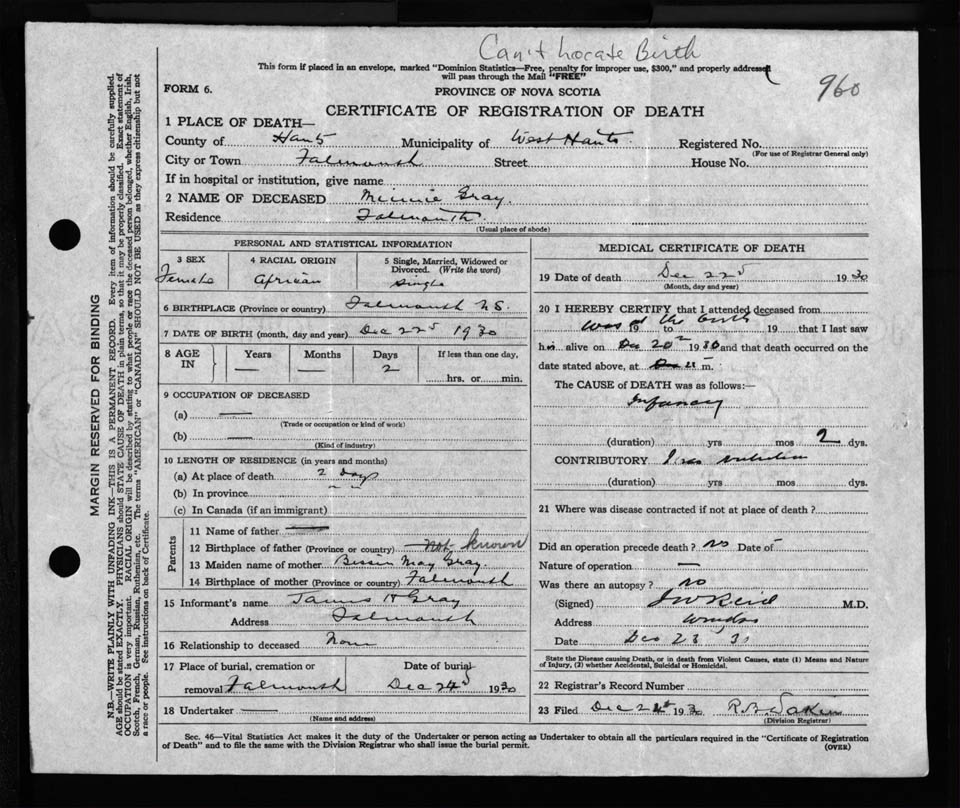 Can't Locate Birth
This form if placed in an envelope, marked "Dominion Statistics—Free, penalty for improper use, $300," and properly addressed
will pass through the Mail "FREE"
960
FORM 6.
PROVINCE OF NOVA SCOTIA
CERTIFICATE OF REGISTRATION OF DEATH
1 PLACE OF DEATH—
County of Hants Municipality of West Hants Registered No.
(For use of Registrar General only)
City or Town Falmouth Street House No.
If in hospital or institution, give name
2 NAME OF DECEASED Minnie Gray.
Residence Falmouth
(Usual place of abode)
MARGIN RESERVED FOR BINDING
N.B.—WRITE PLAINLY WITH UNFADING INK—THIS IS A PERMANENT RECORD. Every item of information should be carefully supplied.
AGE should be stated EXACTLY. PHYSICIANS should STATE CAUSE OF DEATH in plain terms, so that it may be properly classified. Exact statement of
OCCUPATION is very important. RACIAL ORIGIN will be described by stating to what people or race the deceased person belonged, whether English, Irish,
Scotch, French, German, Russian, Ruthenian, etc. The terms "AMERICAN" or "CANADIAN" SHOULD NOT BE USED as they express citizenship but not
a race or people. See instructions on back of Certificate.
PERSONAL AND STATISTICAL INFORMATION
3 SEX
Female
4 RACIAL ORIGIN
African
5 Single, Married, Widowed or
Divorced. (Write the word)
Single
6 BIRTHPLACE (Province or country) Falmouth N.S.
7 DATE OF BIRTH (month, day and year) Dec 22 1930
8 AGE IN Years — Months — Days 2 If less than one day,
hrs. or min.
9 OCCUPATION OF DECEASED
(a) —
(Trade or occupation or kind of work)
(b) —
(Kind of industry)
10 LENGTH OF RESIDENCE (in years and months)
(a) At place of death 2 days
(b) In province
(c) In Canada (if an immigrant)
Parents
11 Name of father —
12 Birthplace of father (Province or country) Not known
13 Maiden name of mother Bessie May Gray
14 Birthplace of mother (Province or country) Falmouth
15 Informant's name James H Gray
Address Falmouth
16 Relationship to deceased None
17 Place of burial, cremation or Date of burial
removal Falmouth Dec 24 1930
18 Undertaker —
(Name and address)
MEDICAL CERTIFICATE OF DEATH
19 Date of death Dec 22 1930
(Month, day and year)
20 I HEREBY CERTIFY that I attended deceased from
was at the birth 19 to 19 that I last saw
h alive on Dec 20 1930 and that death occurred on the
date stated above, at m.
The CAUSE of DEATH was as follows:—
Infancy
(duration) yrs mos 2 dys.
CONTRIBUTORY
(duration) yrs mos dys.
21 Where was disease contracted if not at place of death?
Did an operation precede death? No Date of
Nature of operation —
Was there an autopsy? No
(Signed) J W Reid M.D.
Address Windsor
Date Dec 23
State the Disease causing Death, or in death from Violent Causes, state (1) Means and Nature
of Injury, (2) whether Accidental, Suicidal or Homicidal.
22 Registrar's Record Number
23 Filed Dec 24 1930
(Division Registrar)
Sec. 46—Vital Statistics Act makes it the duty of the Undertaker or person acting as Undertaker to obtain all the particulars required in the "Certificate of Registration
of Death" and to file the same with the Division Registrar who shall issue the burial permit.
(OVER)